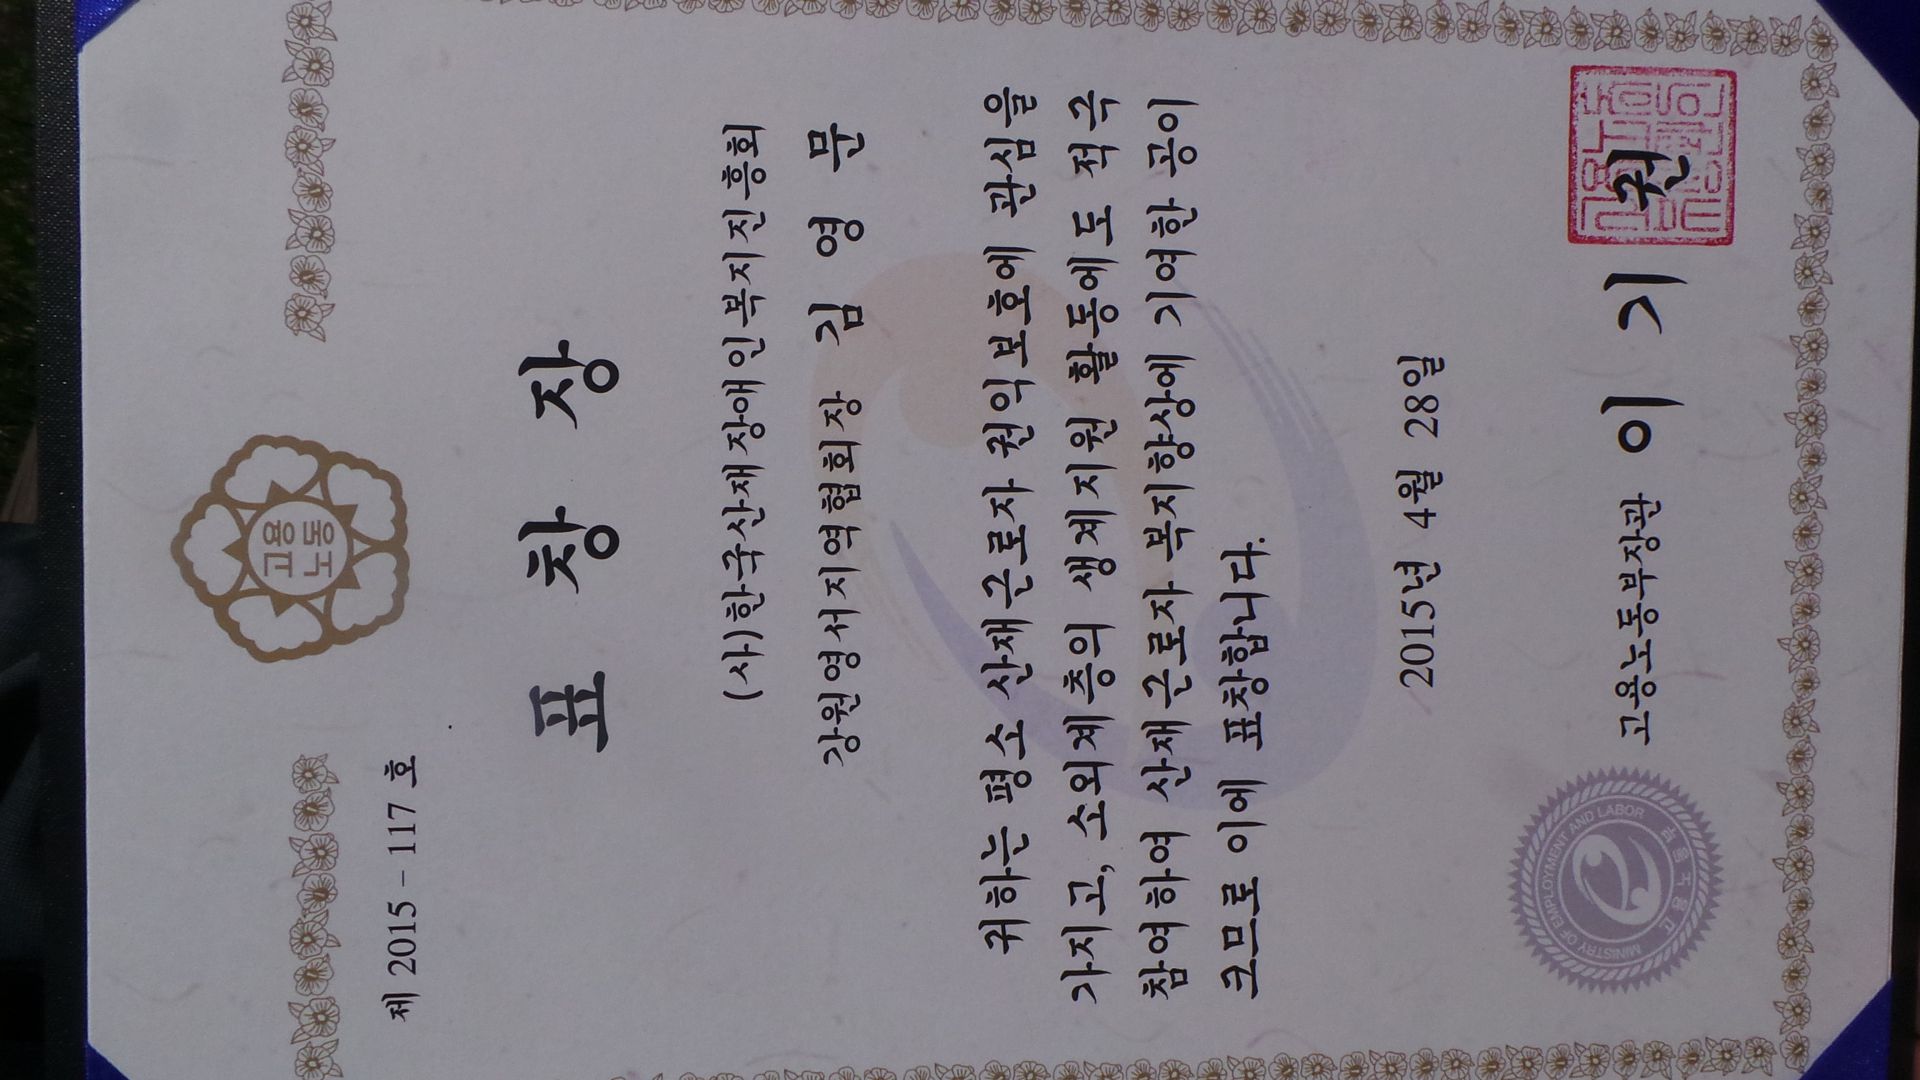 고용
노동
제 2015 - 117 호
표 창 장
(사)한국산재장애인복지진흥회
강원영서지역협회장 김 영 문
귀하는 평소 산재근로자 권익보호에 관심을
가지고, 소외계층의 생계지원 활동에도 적극
참여하여 산재근로자 복지향상에 기여한 공이
크므로 이에 표창합니다.
2015년 4월 28일
고용노동부장관 이 기 권
MINISTRY OF EMPLOYMENT AND LABOR